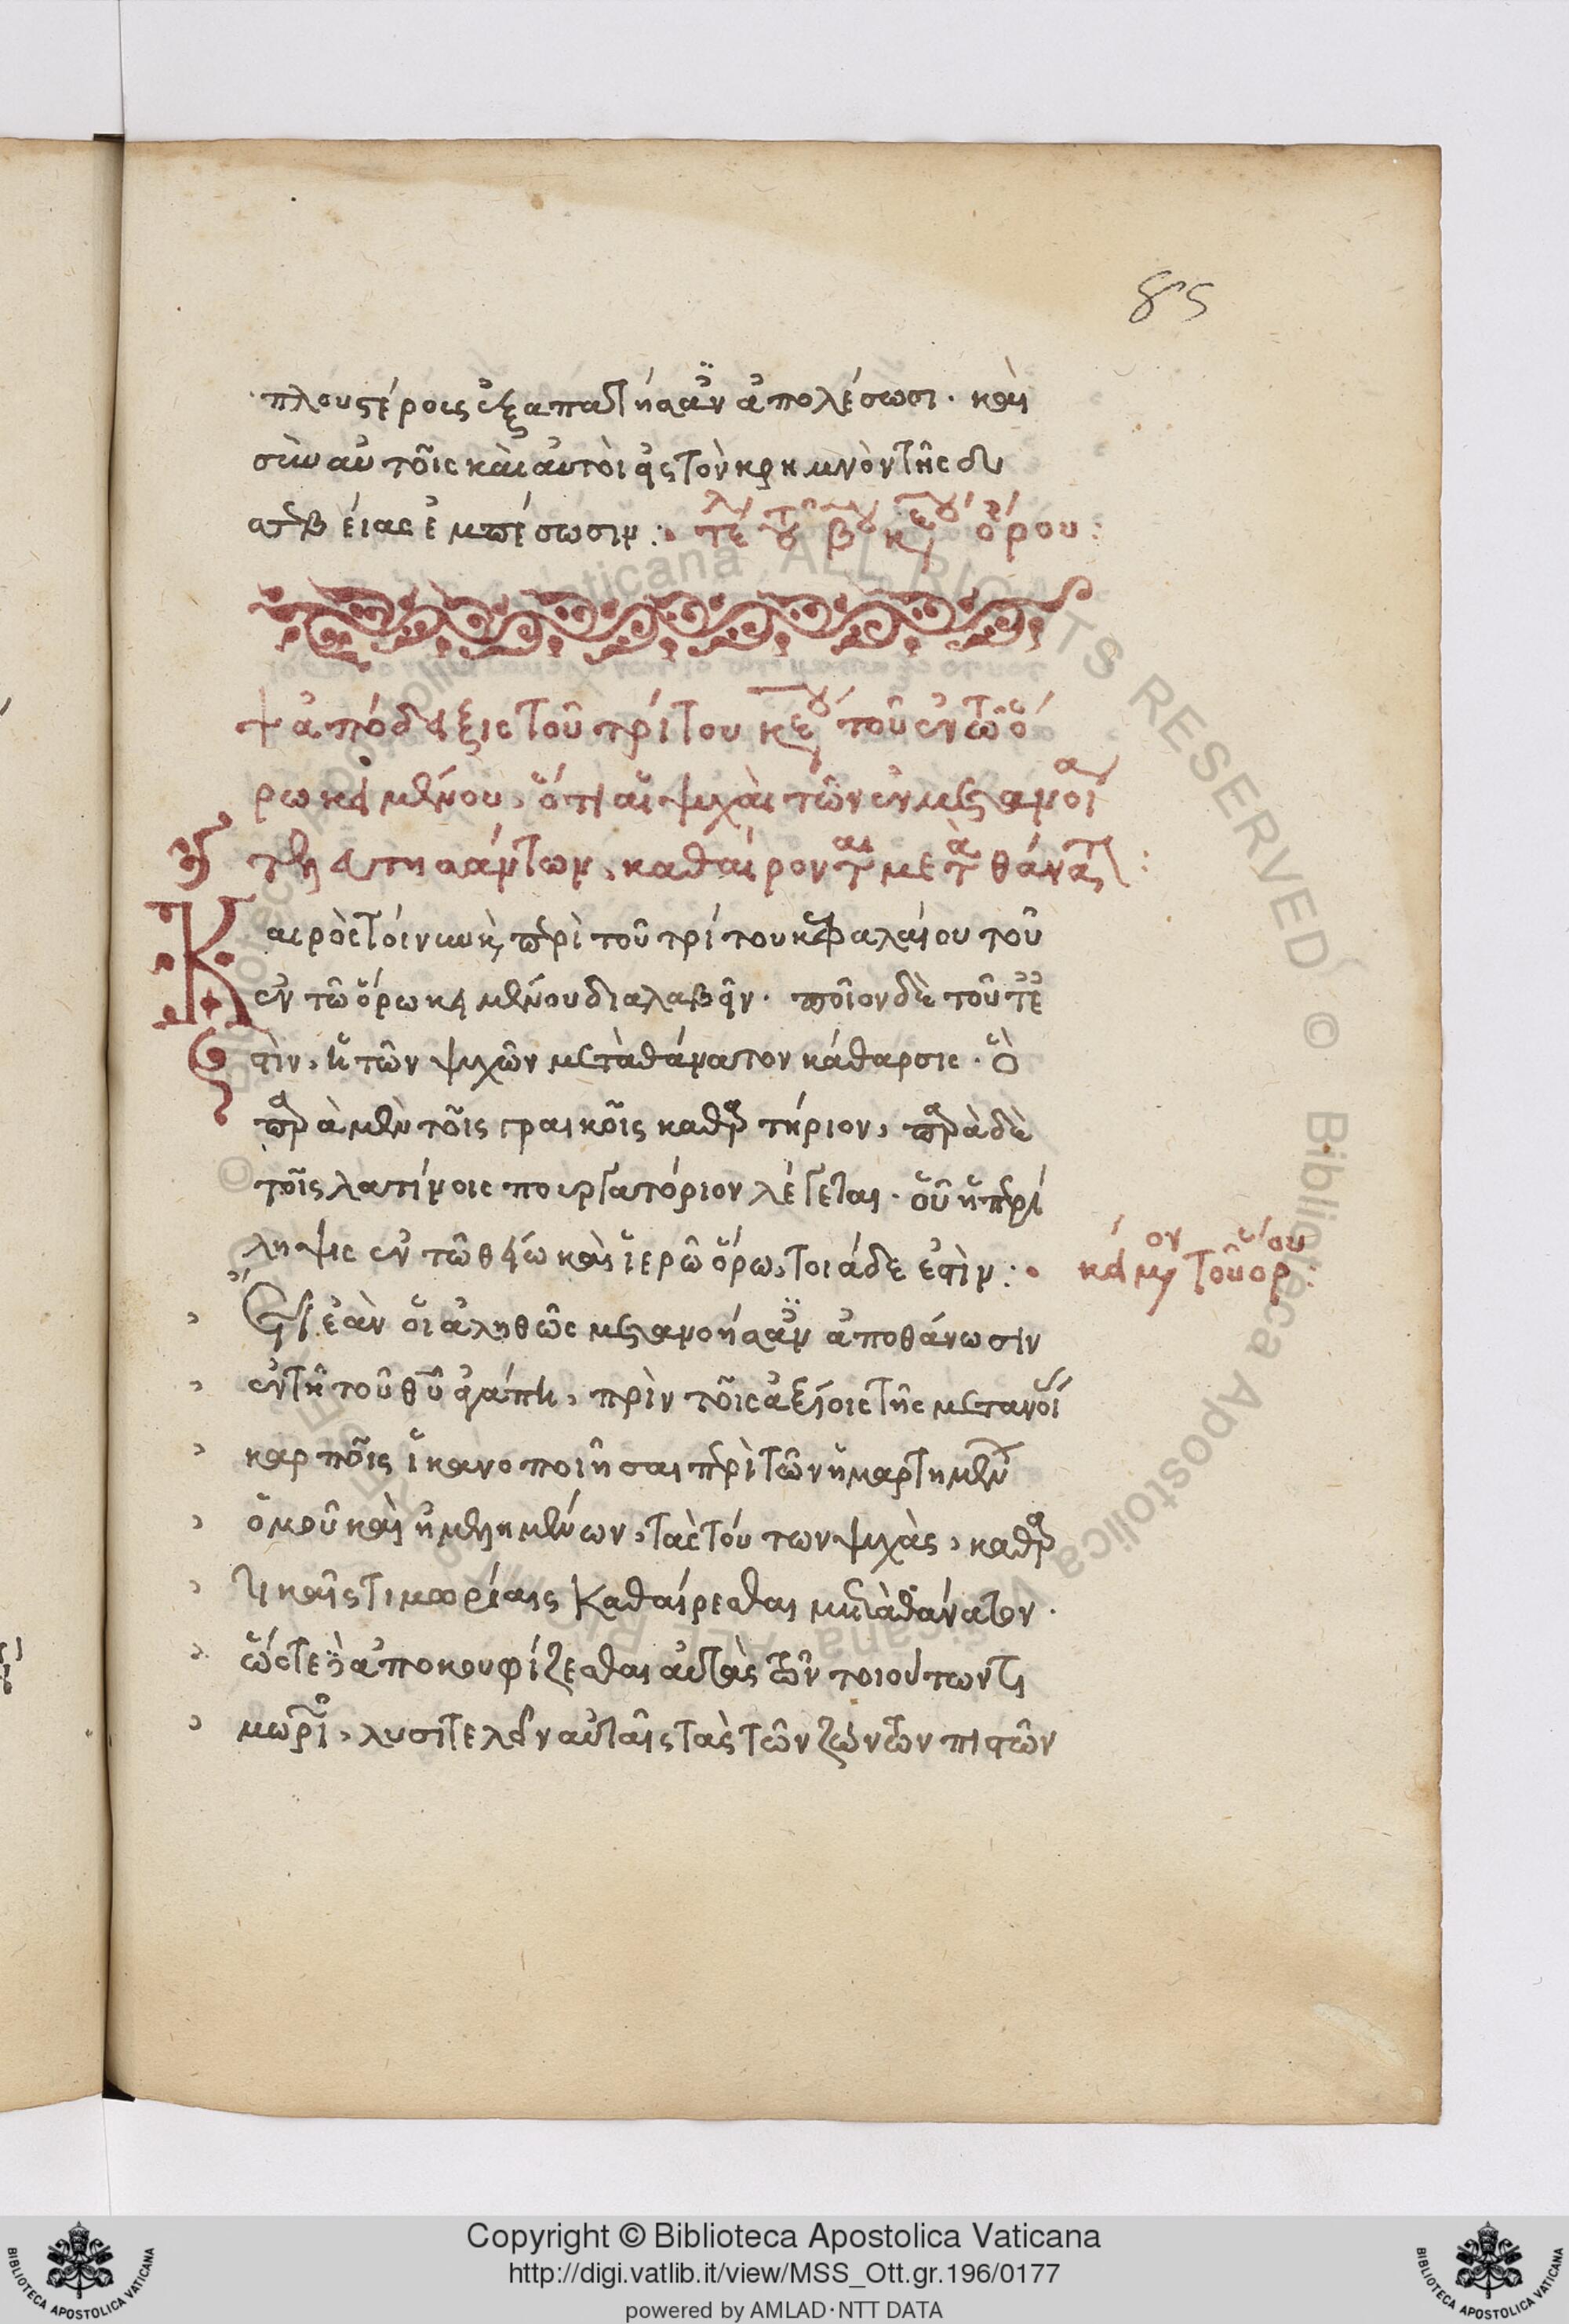 85
πλουστέροις ἐξαπατήσαν ἀπολέσωσι· καὶ
σὺν αὐτοῖς καὶ αὐτοὶ εἰς τὸν κρημνὸν τῆς δυ
σσεβείας ἐμπέσωσιν:· τέλ τοῦ βου κεφου ὅρου:
+ ἀπόδειξις τοῦ τρίτου κεφου τοῦ ἐν τῶ ὅ
ρω κειμένου, ὅτι αἱ ψυχαὶ τῶν ἐν μετανοία
τελειτησάντων, καθαίρονται μετὰ θάνατ:
Καιρὸς τοίνυν καὶ περὶ τοῦ τρίτου κεφαλαίου τοῦ
ἐν τῶ ὅρω κειμένου διαλαβεῖν· ποῖον δὲ τοῦτό ἐ
στιν, ἡ τῶν ψυχῶν μετὰ θάνατον κάθαρσις· ὃ
παρὰ μὲν τοῖς γραικοῖς καθαρτήριον, παρὰ δὲ
τοῖς λατίνοις πουργατόριον λέγεται· οὗ ἡ περί
ληψις ἐν τῶ θείω καὶ ἱερῶ ὅρω, τοιάδε ἐστὶν:·
κείμον τοῦ ὅρου:
Ἔτι ἐὰν οἱ ἀληθῶς μετανοήσαν ἀποθάνωσιν
ἐν τῆ τοῦ θυ ἀγάπη, πρὶν τοῖς ἀξίοις τῆς μετανοί
καρποῖς ἱκανοποιῆσαι περὶ τῶν ἡμαρτημέν
ὁμοῦ καὶ ἠμελημένων, τὰς τούτων ψυχὰς, καθαρ
τικαῖς τιμωρίαις καθαίρεσθαι μετὰ θάνατον·
ὥστε δὲ ἀποκουφίζεσθαι αὐτὰς τῶν τοιούτων τι
μωρι, λυσιτελεῖν αὐταῖς τὰς τῶν ζώντων πιστῶν
Copyright © Biblioteca Apostolica Vaticana
http://digi.vatlib.it/view/MSS_Ott.gr.196/0177
powered by AMLAD·NTT DATA
BIBLIOTECA APOSTOLICA VATICANA
BIBLIOTECA APOSTOLICA VATICANA